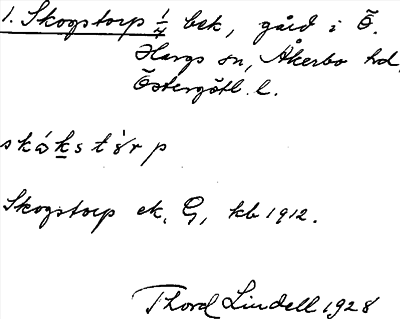 1. Skogstorp 1/4 bek, gård i Ö.
Hargs sn, Åkerbo hd,
Östergötl. l.
Skogstorp ek. G, kb 1912.
Thord Lindell 1928